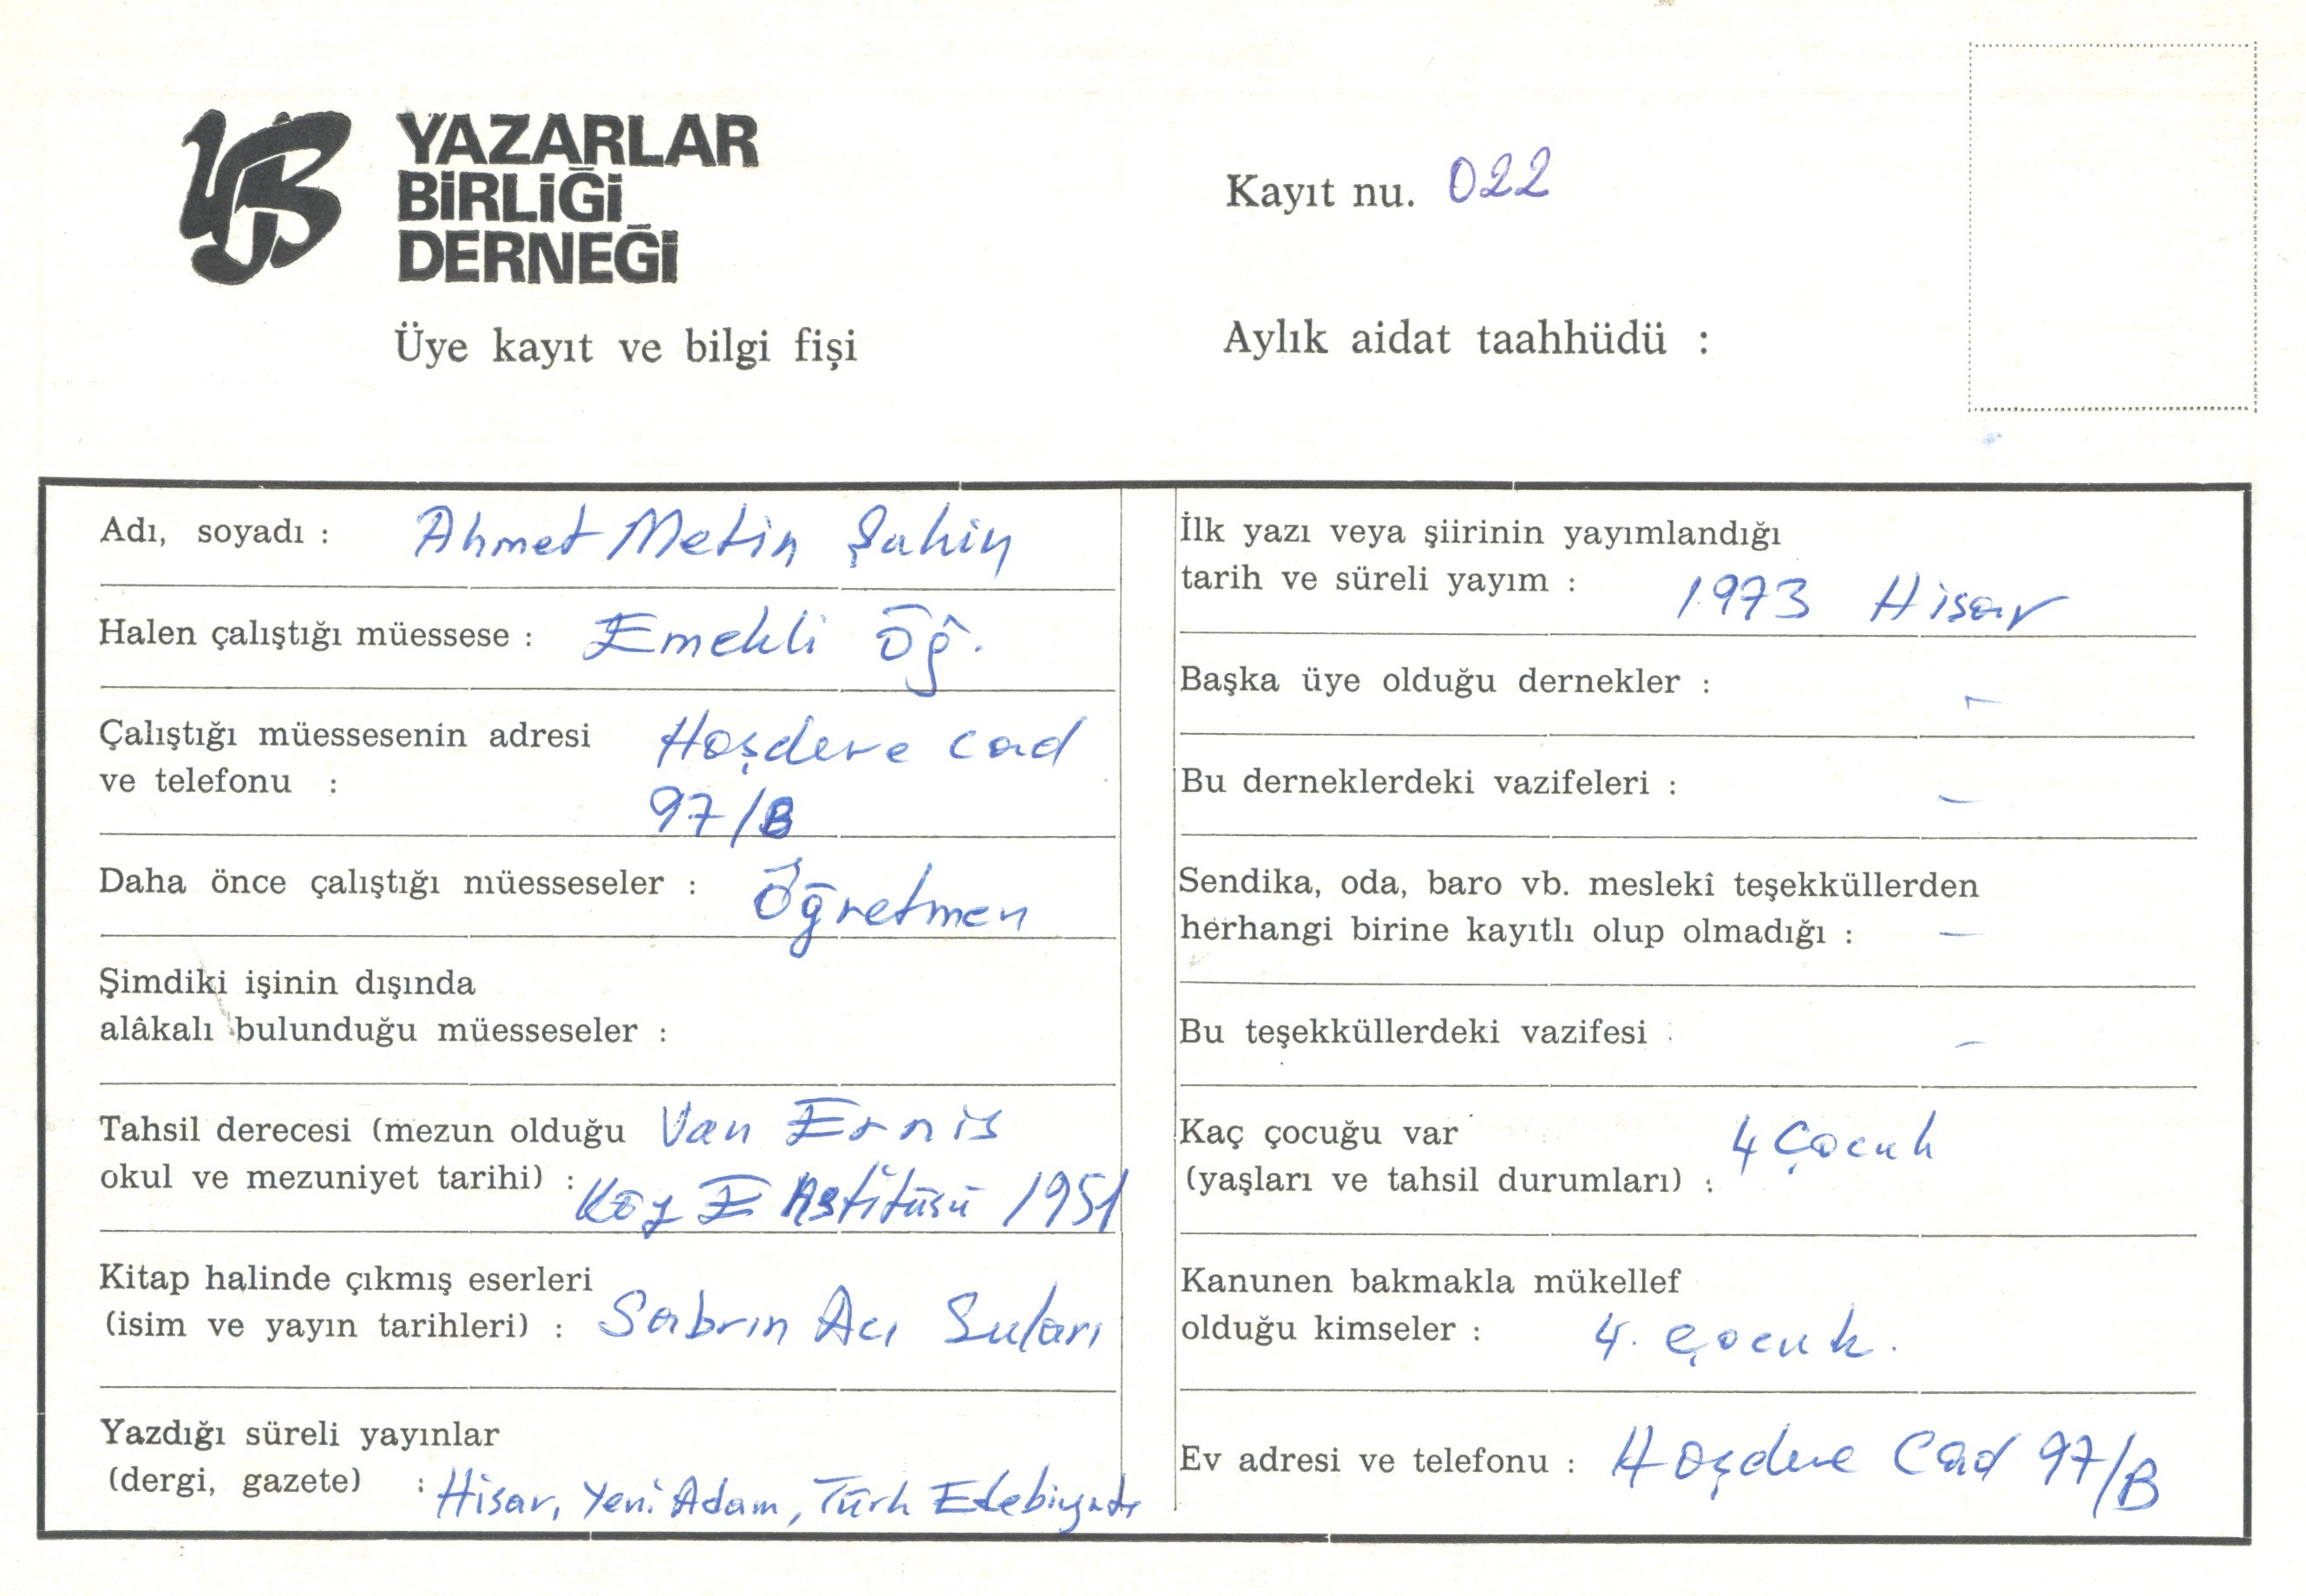 YAZARLAR
BİRLİĞİ
DERNEĞİ
Üye kayıt ve bilgi fişi
Kayıt nu. 022
Aylık aidat taahhüdü :
Adı, soyadı : Ahmet Metin Şahin
Halen çalıştığı müessese : Emekli Öğ.
Çalıştığı müessesenin adresi Hoşdere cad
ve telefonu : 97/B
Daha önce çalıştığı müesseseler : Öğretmen
Şimdiki işinin dışında
alâkalı bulunduğu müesseseler :
Tahsil derecesi (mezun olduğu Van Ernis
okul ve mezuniyet tarihi) : Köy Enstitüsü 1951
Kitap halinde çıkmış eserleri
(isim ve yayın tarihleri) : Sabrın Acı Suları
Yazdığı süreli yayınlar
(dergi, gazete) : Hisar, Yeni Adam, Türk Edebiyatı
İlk yazı veya şiirinin yayımlandığı
tarih ve süreli yayım : 1973 Hisar
Başka üye olduğu dernekler : -
Bu derneklerdeki vazifeleri : -
Sendika, oda, baro vb. meslekî teşekküllerden
herhangi birine kayıtlı olup olmadığı : -
Bu teşekküllerdeki vazifesi : -
Kaç çocuğu var 4 Çocuk
(yaşları ve tahsil durumları) :
Kanunen bakmakla mükellef
olduğu kimseler : 4. çocuk.
Ev adresi ve telefonu : Hoşdere Cad 97/B